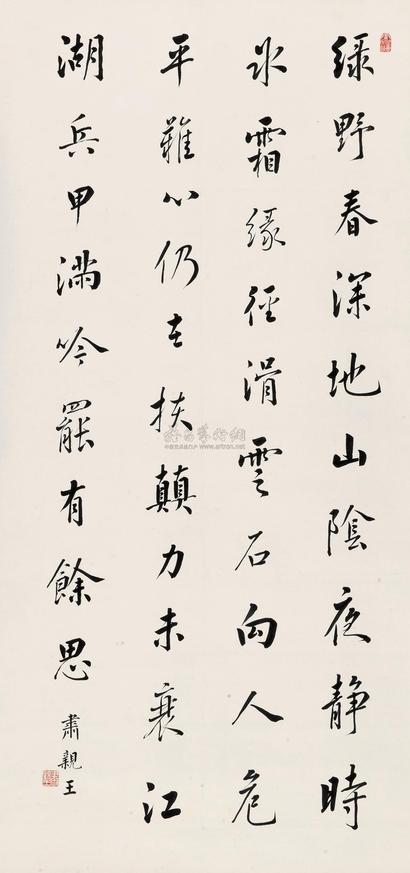 绿野春深地山陰夜静時
冰霜緣徑滑雲石向人危
平難心仍在扶顛力未衰江
湖兵甲滿吟罷有餘思
肅親王
www.artron.net